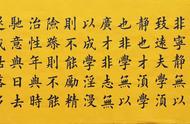 非寧靜無以
致遠夫學須
靜也才須學
也非學無以
廣才非志無
以成學淫慢
則不能勵精
險躁則不能
治性年與時
馳意與日去